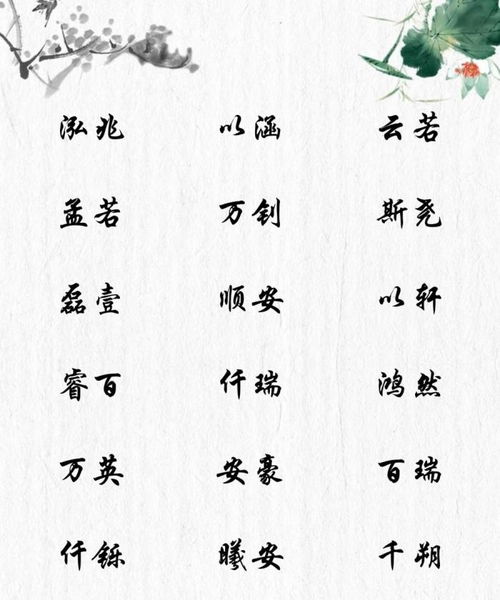 泓兆 以涵 云若
孟若 万钊 斯尧
磊壹 顺安 以轩
睿百 仟瑞 鸿然
万英 安豪 百瑞
仟铄 曦安 千朔